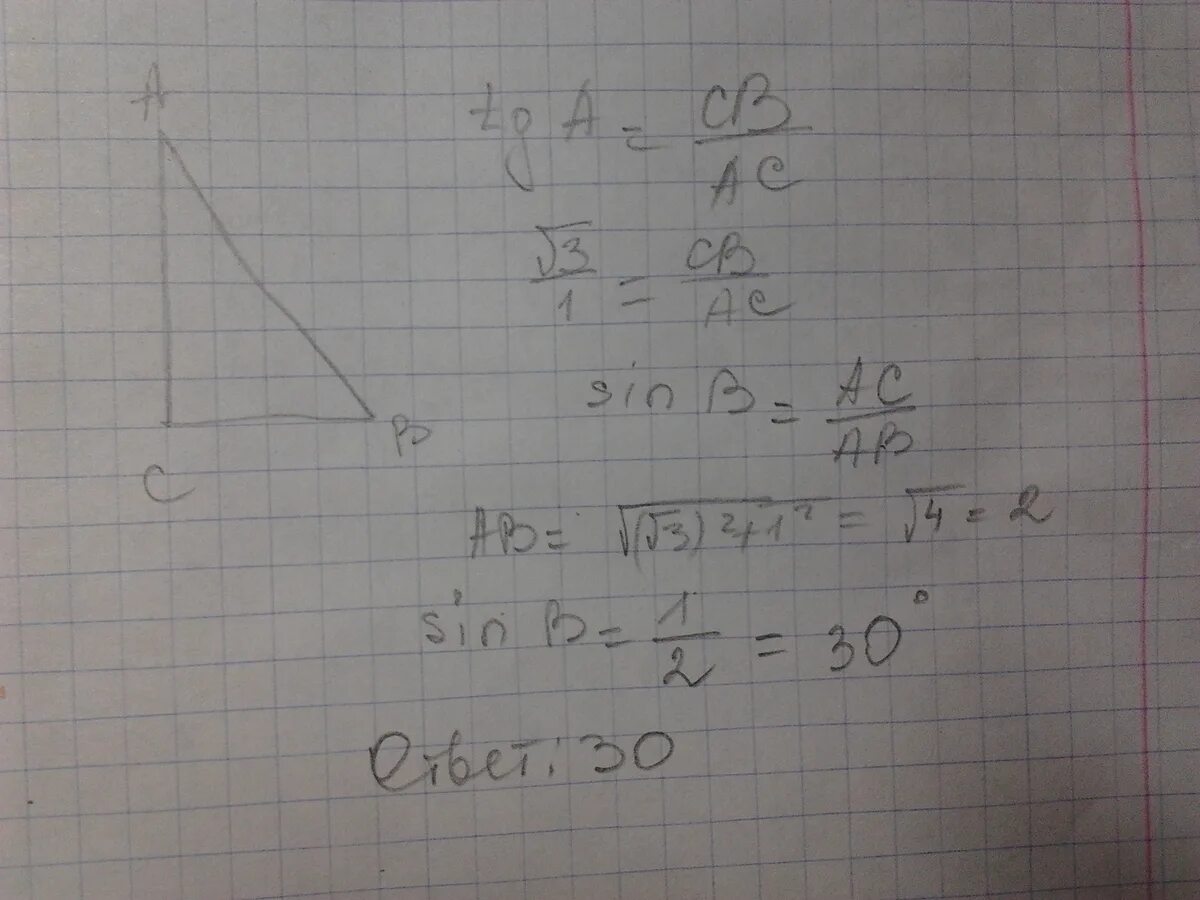 A
C
B
tg A = CB/AC
√3/1 = CB/AC
sin B = AC/AB
AB = √((√3)²+1²) = √4 = 2
sin B = 1/2 = 30°
Ответ: 30